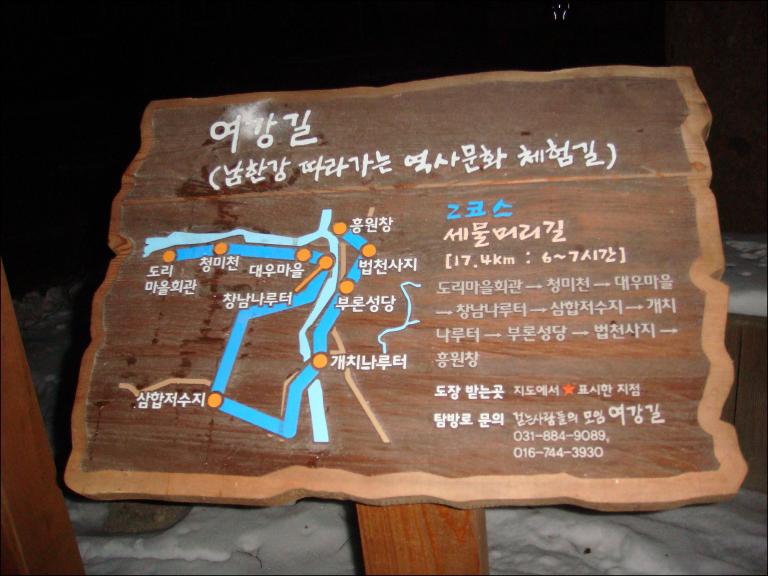 여강길
(남한강 따라가는 역사문화 체험길)
흥원창
도리
마을회관
청미천
대우마을
법천사지
창남나루터
부론성당
개치나루터
삼합저수지
2코스
세물머리길
[17.4km : 6~7시간]
도리마을회관 → 청미천 → 대우마을
→ 창남나루터 → 삼합저수지 → 개치
나루터 → 부론성당 → 법천사지 →
흥원창
도장 받는곳 지도에서 ★ 표시한 지점
탐방로 문의 걷는사람들의 모임 여강길
031-884-9089,
016-744-3930